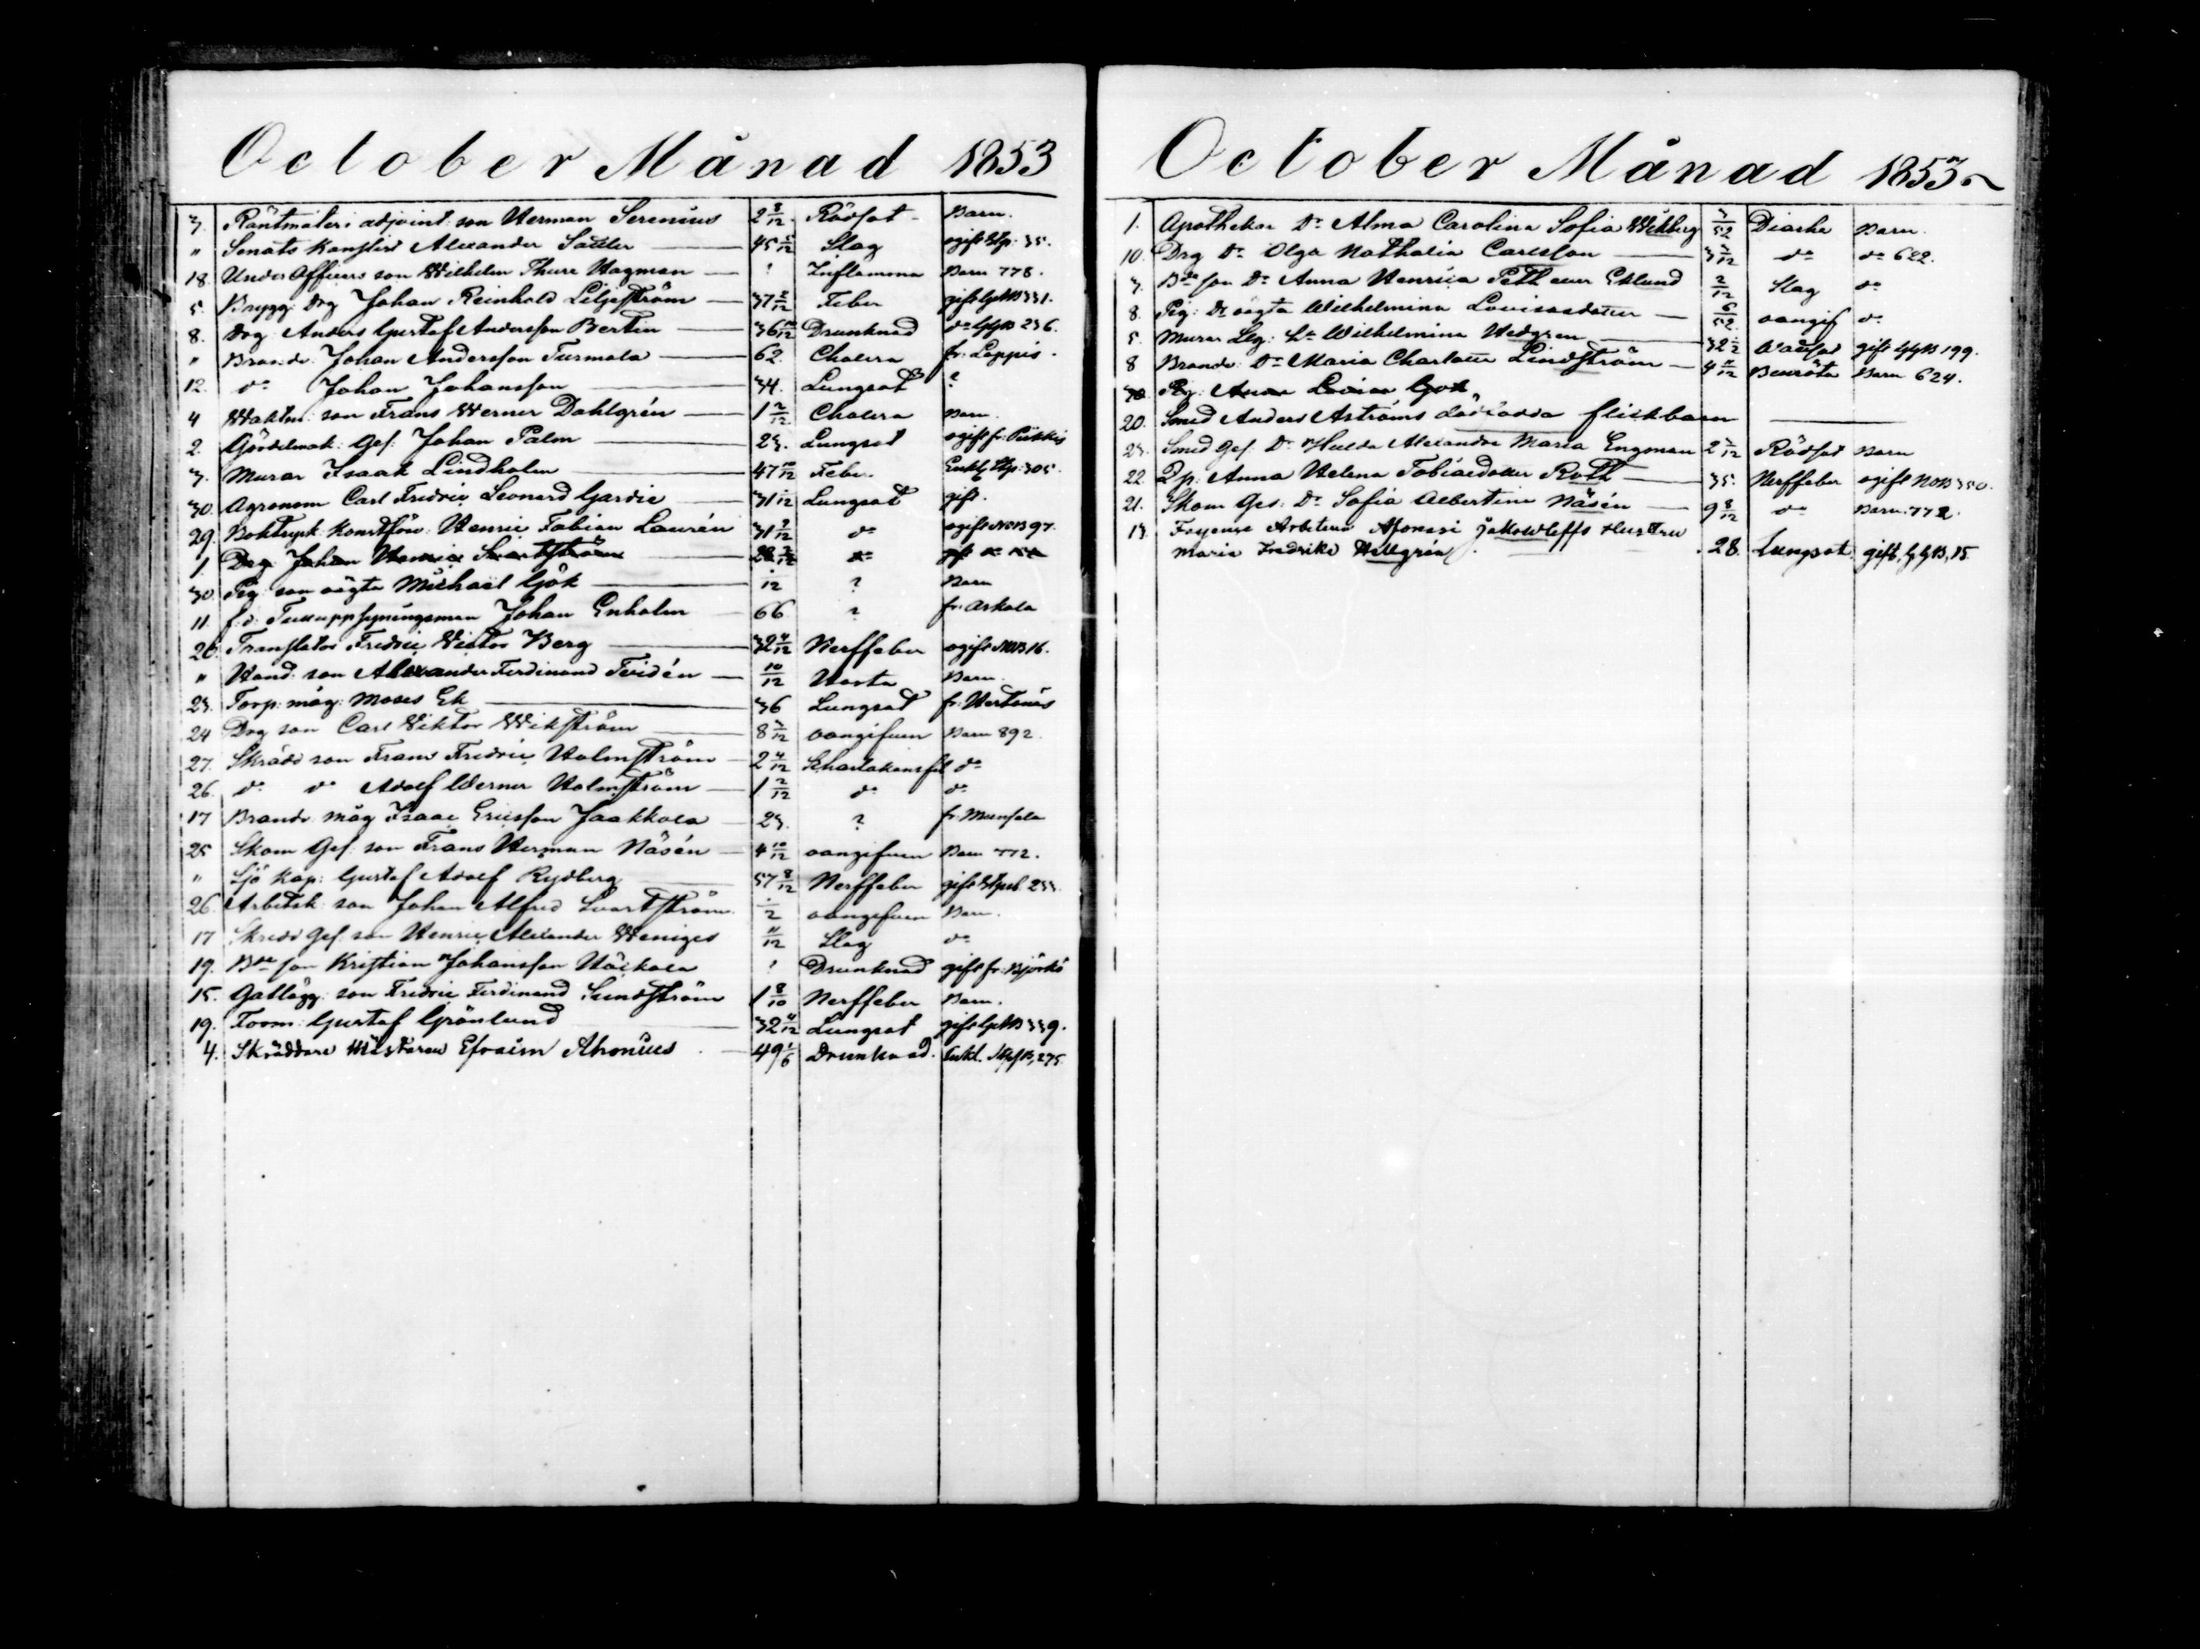 October Månad 1853
3. Räntmäteri adjoint: son Herman Serenius 2 8/12 Rödsot Barn.
" Senats Kanslist Alexander Sadler 45 5/12 Slag ogift Stp: 35.
18. Under Officers son Wilhelm Thure Hagman ? Inflamma Barn 778.
5 Brygg: Drg Johan Reinhold Liljeström 37 Feber gift
8. Drg Anders Gustaf Andersson Bertin 36 Drunknad 236.
" Brands: Johan Andersson Turmola 62. Cholera fr: Loppis.
12. do Johan Johansson 34. Lungsot ?
4 Waktm: son Frans Werner Dahlgrén 1 2/12 Cholera Barn.
2. Gördelmak: Ges: Johan Palm 23. Lungsot ogift fr: Piikkis
3. Murar Isaak Lindholm 47 Feber. Enkl Stp: 305.
30. Agronom Carl Fredric Leonard Gardie 31 Lungsot gift.
29. Boktryck Konstförv: Henric Fabian Laurén 31 do ogift NoB 97.
1. Drg Johan Henric Svartström
30. Pig: son oägta Michael Gök 12 ? Barn
11. f.d. Tulluppsyningsman Johan Enholm 66 ? fr: Askola
26. Translator Fredric Victor Berg 32 4/12 Nerffeber ogift NoB 16.
" Hand: son Alexander Ferdinand Tvidén 10/12 Hosta Barn.
23. Torp: måg: Moses Ek 36 Lungsot fr: Hertonäs
24 Drg son Carl Viktor Wikström 8 3/12 oangifven Barn 892.
27. Skrädd son Frans Fredric Holmström 2 4/12 Scharlakansfeb do
26. do do Adolf Werner Holmström 1 2/12 do do
17 Brands måg Isaac Ericsson Jaakkola 23. ? fr: Munsala
25 Skom Ges: son Frans Herman Näsén 4 10/12 oangifven Barn 772.
" Sjö Kap: Gustaf Adolf Rydberg 57 8/12 Nerffeber gift
26. Arbetsk: son Johan Alfred Svartström 1/2 oangifven Barn.
17 Skrädd Ges: son Henric Alexander Weniges 11/12 Slag do
19. Bde son Kristian Johansson Höckola ? Drunknad gift fr: Björkö
15. Gatlägg: son Fredric Ferdinand Sundström 1 8/10 Nerffeber Barn.
19. Form: Gustaf Grönlund 32 4/12 Lungsot gift 339.
4. Skräddare Mästaren Efraim Ahonius 49 1/6 Drunknad. Enkl. 275.
October Månad 1853
1. Apothekar Dr Alma Carolina Sofia Wikberg 3/52 Diarhe Barn.
10. Drg Dr Olga Nathalia Carlsson 3 3/12 do do 622.
3. Bde son Dr Anna Henrica Eklund 2/12 Slag do
8. Pig: Dr oägta Wilhelmina Lovisasdotter 6/52 oangif do
5. Murar Wilhelmina Hedgren 32 1/2 gift 199.
8 Brands: Dr Maria Charlotta Lindström 4 Benröta Barn 624.
30 Pig: Anna Lovisa Gök
20. Smed Anders Aströms dödfödda flickbarn
23. Smed Ges: Dr Hulda Alexandra Maria Engman 2 3/12 Rödsot Barn
22. Anna Helena Tobiaedotter Roth 35 Nerffeber ogift NoB 350.
21. Skom Ges: Dr Sofia Albertina Näsén 9 8/12 do Barn. 772.
13. Fayence Arbetare Afonasi Jakowleffs Hustru
Maria Fredrika Hellgrén 28 Lungsot. gift, 15.